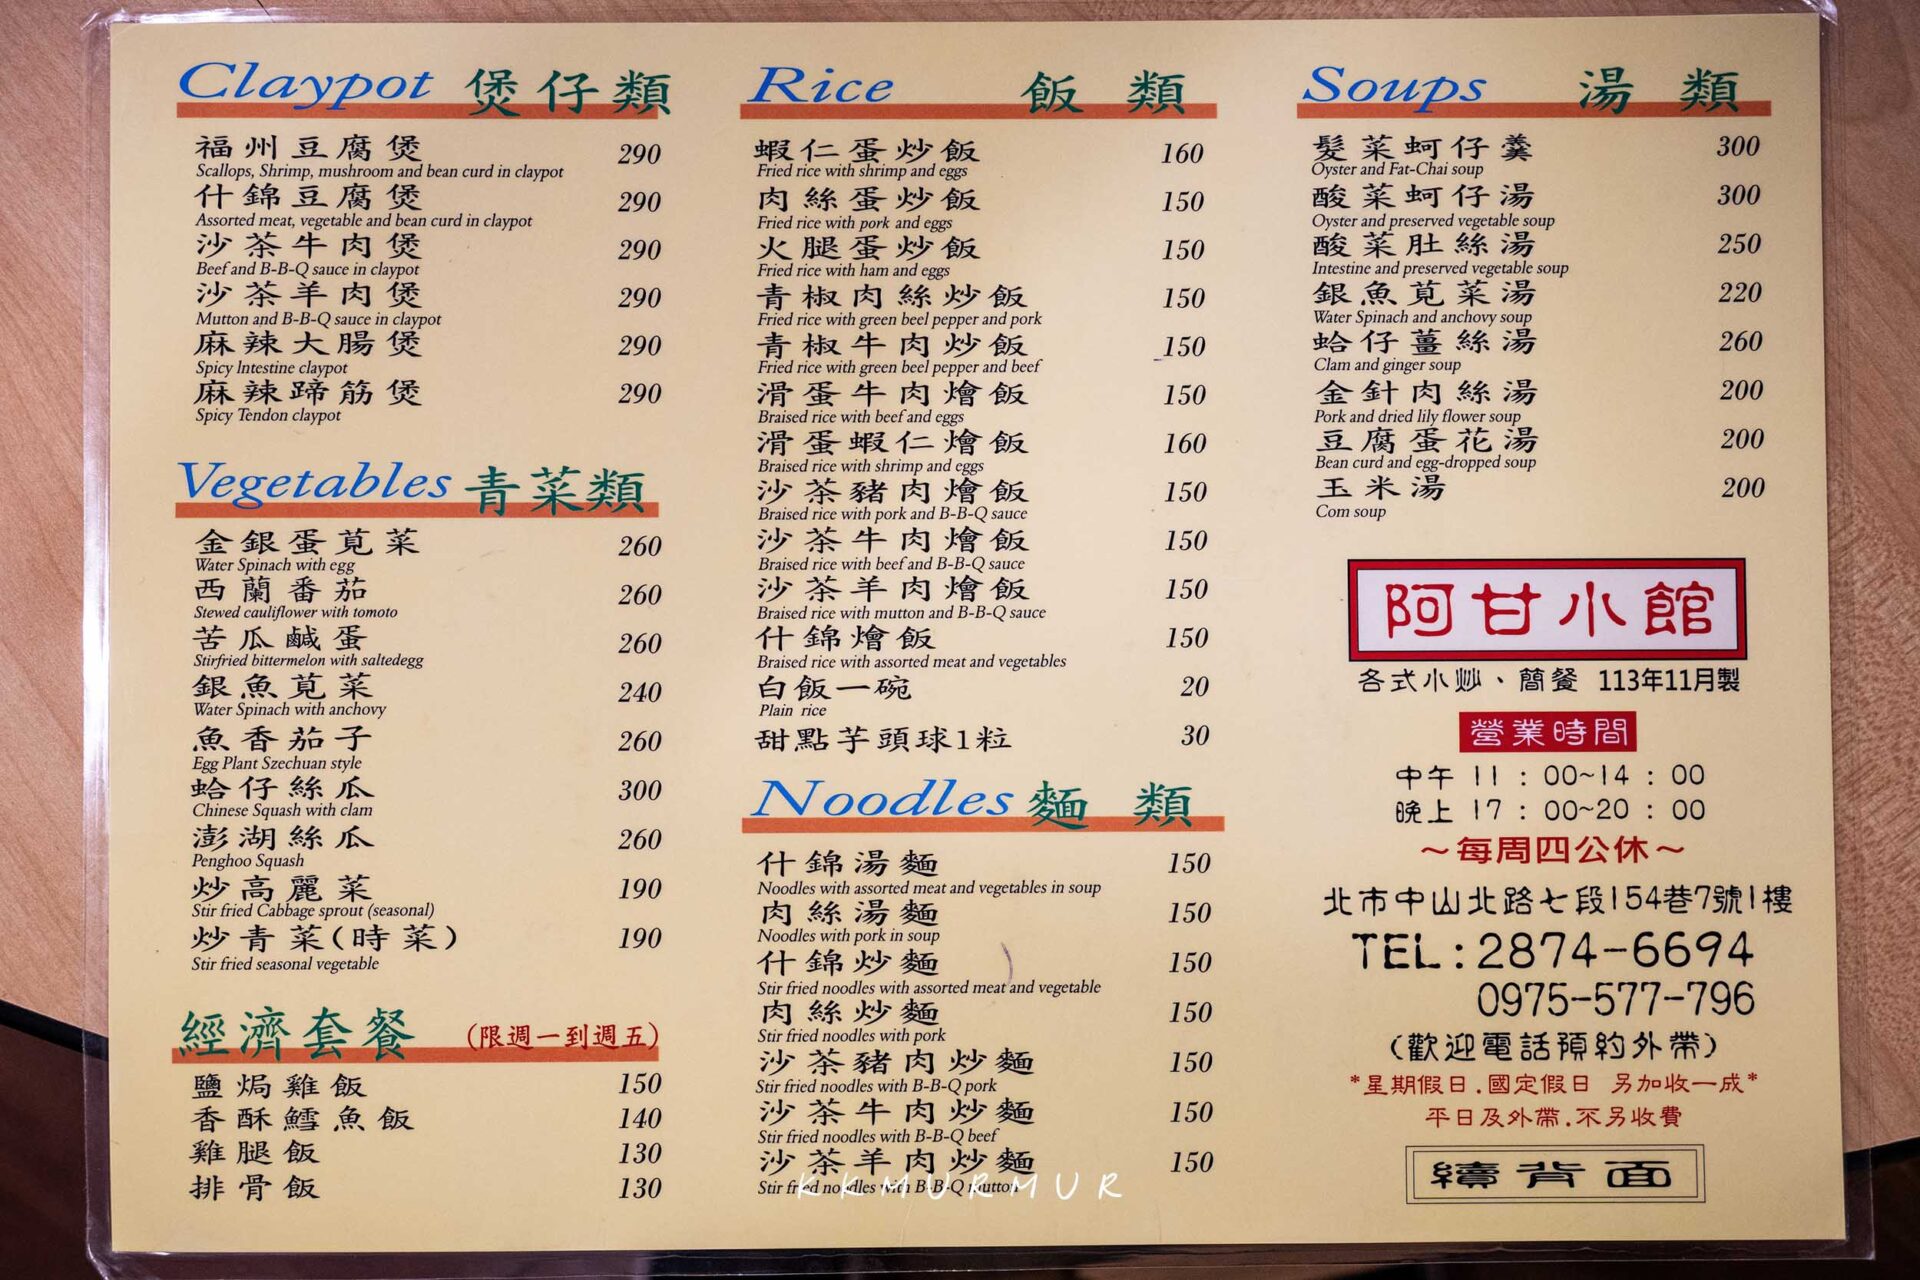 Claypot 煲仔類
福州豆腐煲 290
Scallops, Shrimp, mushroom and bean curd in claypot
什錦豆腐煲 290
Assorted meat, vegetable and bean curd in claypot
沙茶牛肉煲 290
Beef and B-B-Q sauce in claypot
沙茶羊肉煲 290
Mutton and B-B-Q sauce in claypot
麻辣大腸煲 290
Spicy Intestine claypot
麻辣蹄筋煲 290
Spicy Tendon claypot
Vegetables 青菜類
金銀蛋莧菜 260
Water Spinach with egg
西蘭番茄 260
Stewed cauliflower with tomoto
苦瓜鹹蛋 260
Stirfried bittermelon with saltedegg
銀魚莧菜 240
Water Spinach with anchovy
魚香茄子 260
Egg Plant Szechuan style
蛤仔絲瓜 300
Chinese Squash with clam
澎湖絲瓜 260
Penghoo Squash
炒高麗菜 190
Stir fried Cabbage sprout (seasonal)
炒青菜(時菜) 190
Stir fried seasonal vegetable
經濟套餐 (限週一到週五)
鹽焗雞飯 150
香酥鱈魚飯 140
雞腿飯 130
排骨飯 130
Rice 飯類
蝦仁蛋炒飯 160
Fried rice with shrimp and eggs
肉絲蛋炒飯 150
Fried rice with pork and eggs
火腿蛋炒飯 150
Fried rice with ham and eggs
青椒肉絲炒飯 150
Fried rice with green beel pepper and pork
青椒牛肉炒飯 150
Fried rice with green beel pepper and beef
滑蛋牛肉燴飯 150
Braised rice with beef and eggs
滑蛋蝦仁燴飯 160
Braised rice with shrimp and eggs
沙茶豬肉燴飯 150
Braised rice with pork and B-B-Q sauce
沙茶牛肉燴飯 150
Braised rice with beef and B-B-Q sauce
沙茶羊肉燴飯 150
Braised rice with mutton and B-B-Q sauce
什錦燴飯 150
Braised rice with assorted meat and vegetables
白飯一碗 20
Plain rice
甜點芋頭球1粒 30
Noodles 麵類
什錦湯麵 150
Noodles with assorted meat and vegetables in soup
肉絲湯麵 150
Noodles with pork in soup
什錦炒麵 150
Stir fried noodles with assorted meat and vegetable
肉絲炒麵 150
Stir fried noodles with pork
沙茶豬肉炒麵 150
Stir fried noodles with B-B-Q pork
沙茶牛肉炒麵 150
Stir fried noodles with B-B-Q beef
沙茶羊肉炒麵 150
Stir fried noodles with B-B-Q mutton
KKMURMUR
Soups 湯類
髮菜蚵仔羹 300
Oyster and Fat-Chai soup
酸菜蚵仔湯 300
Oyster and preserved vegetable soup
酸菜肚絲湯 250
Intestine and preserved vegetable soup
銀魚莧菜湯 220
Water Spinach and anchovy soup
蛤仔薑絲湯 260
Clam and ginger soup
金針肉絲湯 200
Pork and dried lily flower soup
豆腐蛋花湯 200
Bean curd and egg-dropped soup
玉米湯 200
Corn soup
阿甘小館
各式小炒、簡餐 113年11月製
營業時間
中午 11：00~14：00
晚上 17：00~20：00
～每周四公休～
北市中山北路七段154巷7號1樓
TEL:2874-6694
0975-577-796
(歡迎電話預約外帶)
*星期假日.國定假日 另加收一成*
平日及外帶.不另收費
續背面